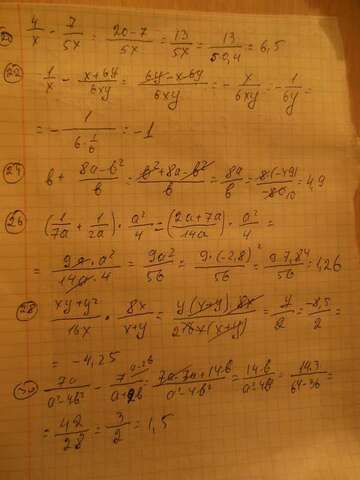 20 4/x - 7/5x = 20-7/5x = 13/5x = 13/5·0,4 = 6,5
22 1/x - x+6y/6xy = 6y-x-6y/6xy = - x/6xy = - 1/6y =
= - 1/6·1/6 = -1
24 b + 8a-b²/b = b²+8a-b²/b = 8a/b = 8·(-49)/-80 = 4,9
26 (1/7a + 1/2a) · a²/4 = (2a+7a/14a) · a²/4 =
= 9a·a²/14a·4 = 9a²/56 = 9·(-2,8)²/56 = 9·7,84/56 = 1,26
28 xy+y²/16x · 8x/x+y = y(x+y)·8x/2·8x(x+y) = y/2 = -8,5/2 =
= -4,25
30 7a/a²-4b² - 7/a+2b = 7a-7a+14b/a²-4b² = 14b/a²-4b² = 14·3/64-36 =
= 42/28 = 3/2 = 1,5